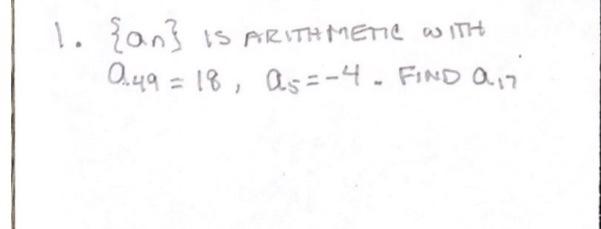 1. {an} IS ARITHMETIC WITH
a49 = 18, a5 = -4. FIND a17